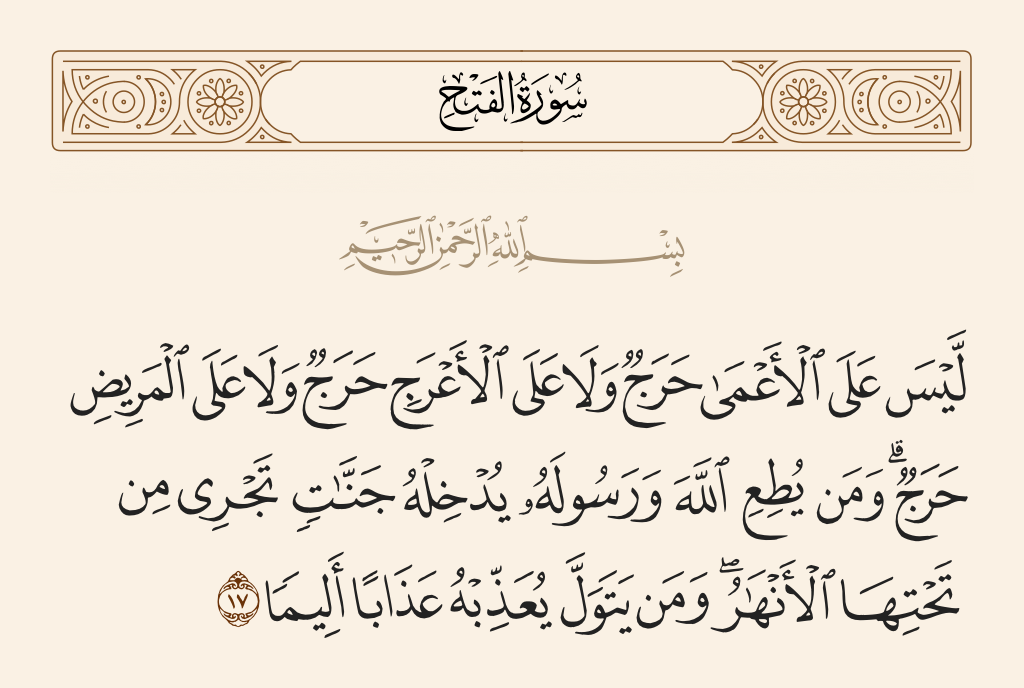 سُورَةُ الفَتْحِ
بِسْمِ ٱللَّهِ ٱلرَّحْمَٰنِ ٱلرَّحِيمِ
لَّيْسَ عَلَى ٱلْأَعْمَىٰ حَرَجٌ وَلَا عَلَى ٱلْأَعْرَجِ حَرَجٌ وَلَا عَلَى ٱلْمَرِيضِ
حَرَجٌ ۗ وَمَن يُطِعِ ٱللَّهَ وَرَسُولَهُۥ يُدْخِلْهُ جَنَّٰتٍ تَجْرِى مِن
تَحْتِهَا ٱلْأَنْهَٰرُ ۖ وَمَن يَتَوَلَّ يُعَذِّبْهُ عَذَابًا أَلِيمًا ١٧